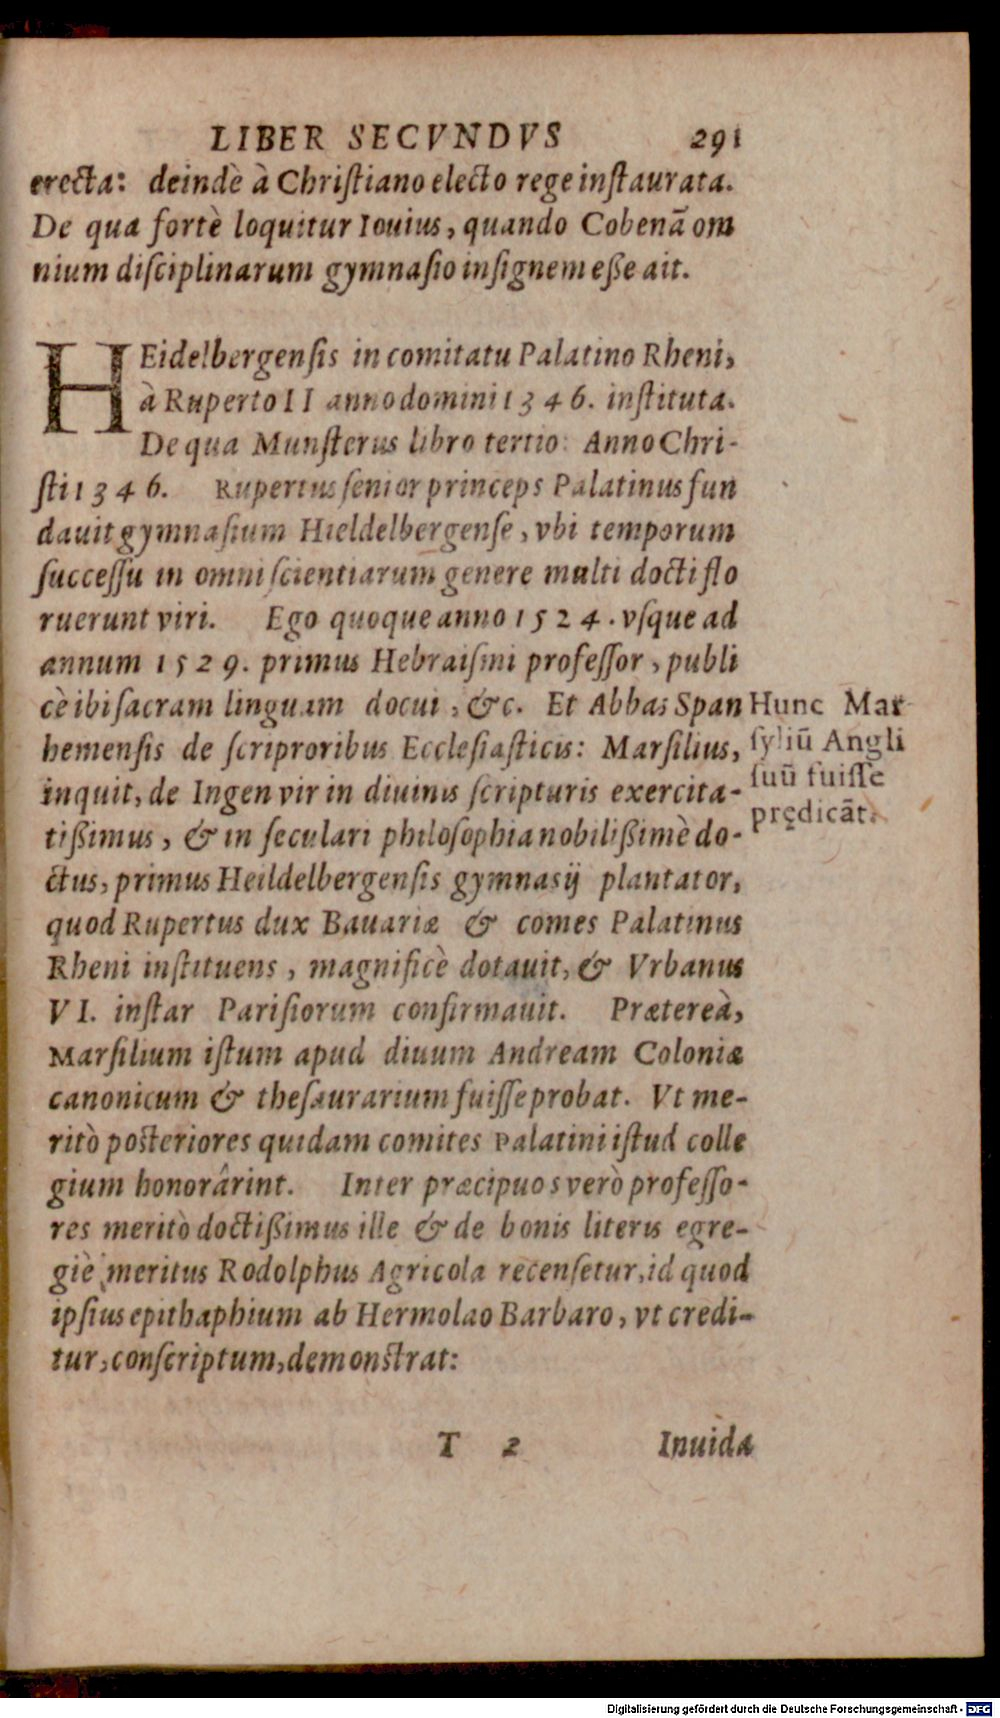 LIBER SECVNDVS 291
erecta: deindè à Chriſtiano electo rege inſtaurata.
De qua fortè loquitur Iouius, quando Cobenā om
nium diſciplinarum gymnaſio inſignem eſſe ait.
HEidelbergenſis in comitatu Palatino Rheni,
à Ruperto II anno domini 1346. inſtituta.
De qua Munſterus libro tertio: Anno Chri-
ſti 1346. Rupertus ſenior princeps Palatinus fun
dauit gymnaſium Hieldelbergenſe, vbi temporum
ſucceſſu in omni ſcientiarum genere multi docti flo
ruerunt viri. Ego quoque anno 1524. vſque ad
annum 1529. primus Hebraiſmi profeſſor, publi
cè ibi ſacram linguam docui, &c. Et Abbas Span
hemenſis de ſcriproribus Eccleſiaſticis: Marſilius,
inquit, de Ingen vir in diuinis ſcripturis exercita-
tiſſimus, & in ſeculari philoſophia nobiliſſimè do-
ctus, primus Heildelbergenſis gymnasij plantator,
quod Rupertus dux Bauariæ & comes Palatinus
Rheni inſtituens, magnificè dotauit, & Vrbanus
VI. inſtar Pariſiorum confirmauit. Prætereà,
Marſilium iſtum apud diuum Andream Coloniæ
canonicum & theſaurarium fuiſſe probat. Vt me-
ritò poſteriores quidam comites Palatini iſtud colle
gium honorârint. Inter præcipuos verò profeſſo-
res meritò doctiſſimus ille & de bonis literis egre-
giè meritus Rodolphus Agricola recenſetur, id quod
ipſius epithaphium ab Hermolao Barbaro, vt credi-
tur, conſcriptum, demonſtrat:
Hunc Mar
ſyliū Angli
ſuū fuiſſe
prędicāt.
T 2 Inuida
Digitalisierung gefördert durch die Deutsche Forschungsgemeinschaft - DFG